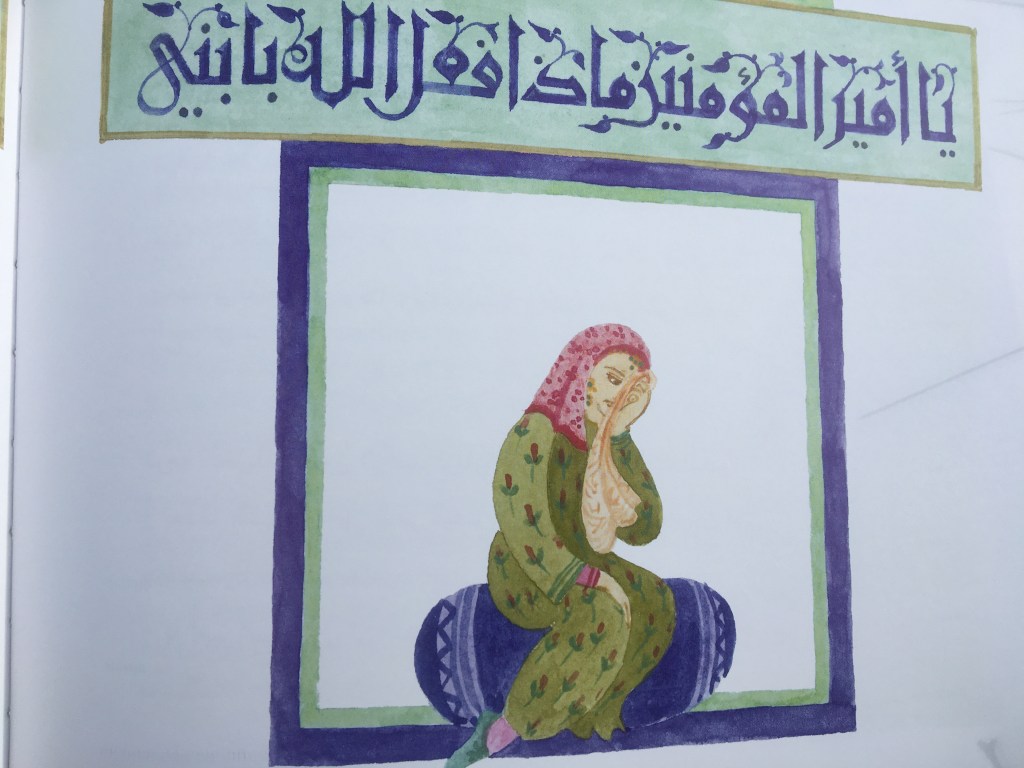 يا أمير المؤمنين ماذا فعل الله بابني